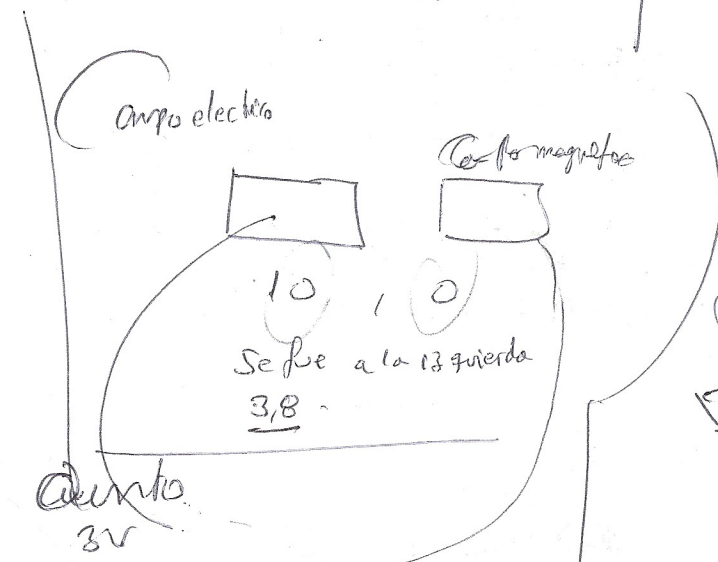 Campo electrico
Campo magnetico
10 , 0
Se fue a la izquierda
3,8
Quinto
3V